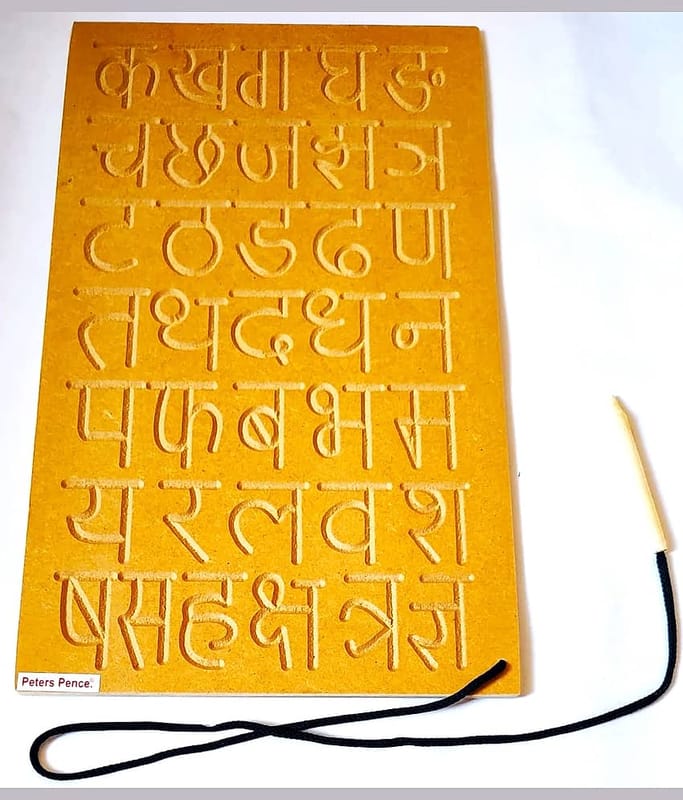 क ख ग घ ङ
च छ ज झ ञ
ट ठ ड ढ ण
त थ द ध न
प फ ब भ म
य र ल व श
ष स ह क्ष त्र ज्ञ
Peters Pence